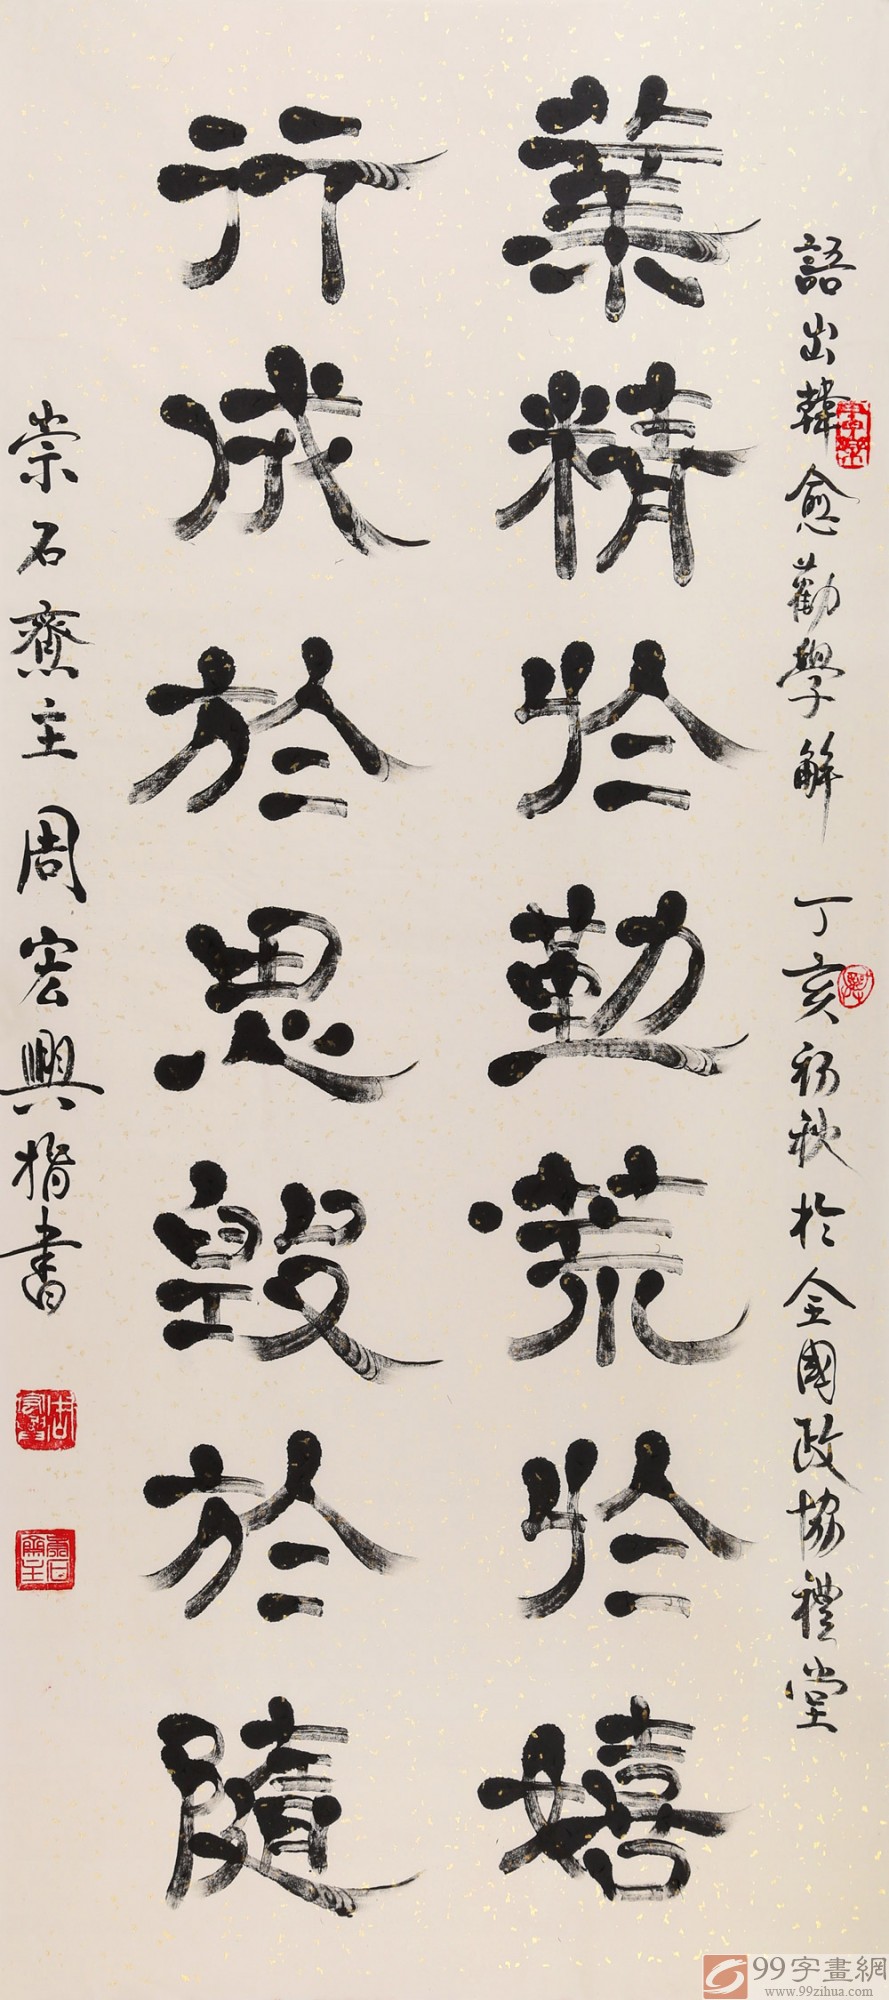 語出韓愈勸學解 丁亥初秋於全國政協禮堂
業精於勤荒於嬉
行成於思毀於隨
崇石齋主周宏興指書
99字畫網
www.99zihua.com